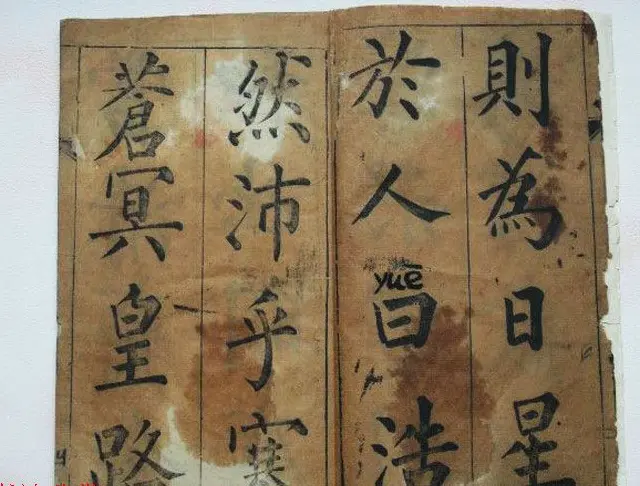 則為日星
於人yuē曰浩
然沛乎塞
蒼冥皇路